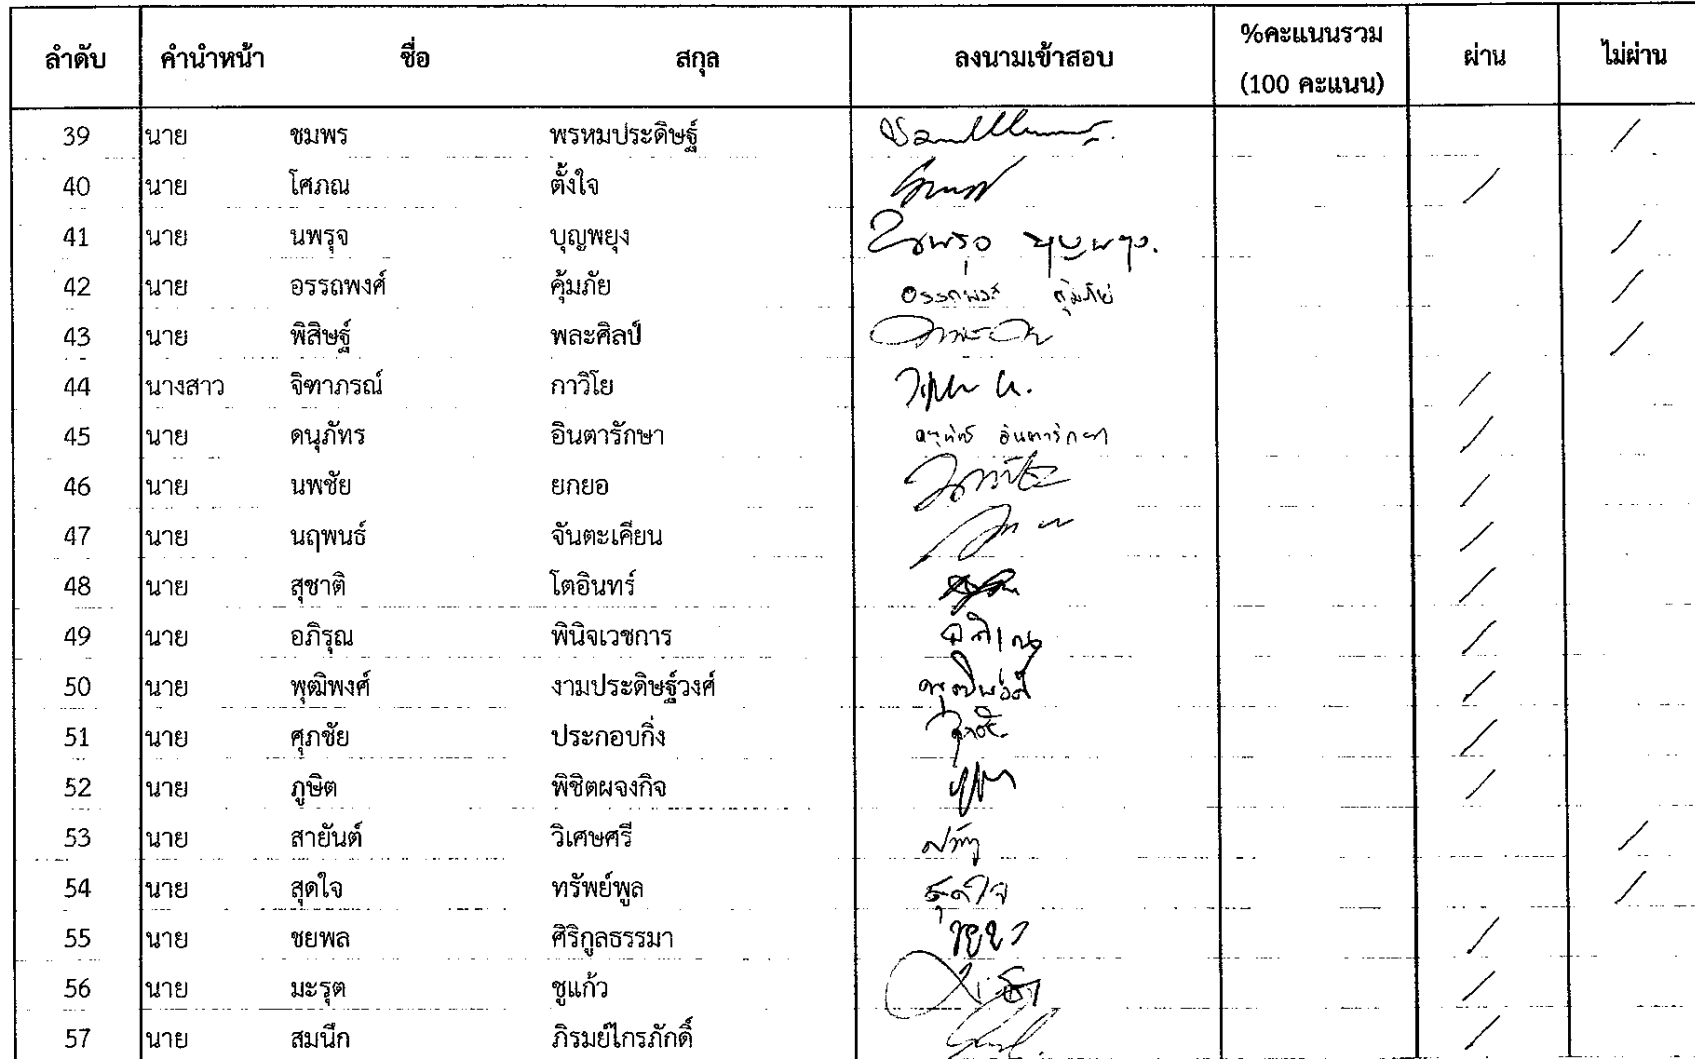 ลำดับ คำนำหน้า ชื่อ สกุล ลงนามเข้าสอบ %คะแนนรวม (100 คะแนน) ผ่าน ไม่ผ่าน
39 นาย ชมพร พรหมประดิษฐ์ /
40 นาย โศภณ ตั้งใจ /
41 นาย นพรุจ บุญพยุง นพรุจ บุญพยุง. /
42 นาย อรรถพงศ์ คุ้มภัย อรรถพงศ์ คุ้มภัย /
43 นาย พิสิษฐ์ พละศิลป์ /
44 นางสาว จิฑาภรณ์ กาวิโย /
45 นาย ดนุภัทร อินตารักษา ดนุภัทร อินตารักษา /
46 นาย นพชัย ยกยอ /
47 นาย นฤพนธ์ จันตะเคียน /
48 นาย สุชาติ โตอินทร์ /
49 นาย อภิรุณ พินิจเวชการ อภิรุณ /
50 นาย พุฒิพงศ์ งามประดิษฐ์วงศ์ พุฒิพงศ์ /
51 นาย ศุภชัย ประกอบกิ่ง /
52 นาย ภูษิต พิชิตผจงกิจ /
53 นาย สายันต์ วิเศษศรี /
54 นาย สุดใจ ทรัพย์พูล สุดใจ /
55 นาย ชยพล ศิริกูลธรรมา /
56 นาย มะรุต ชูแก้ว /
57 นาย สมนึก ภิรมย์ไกรภักดิ์ /